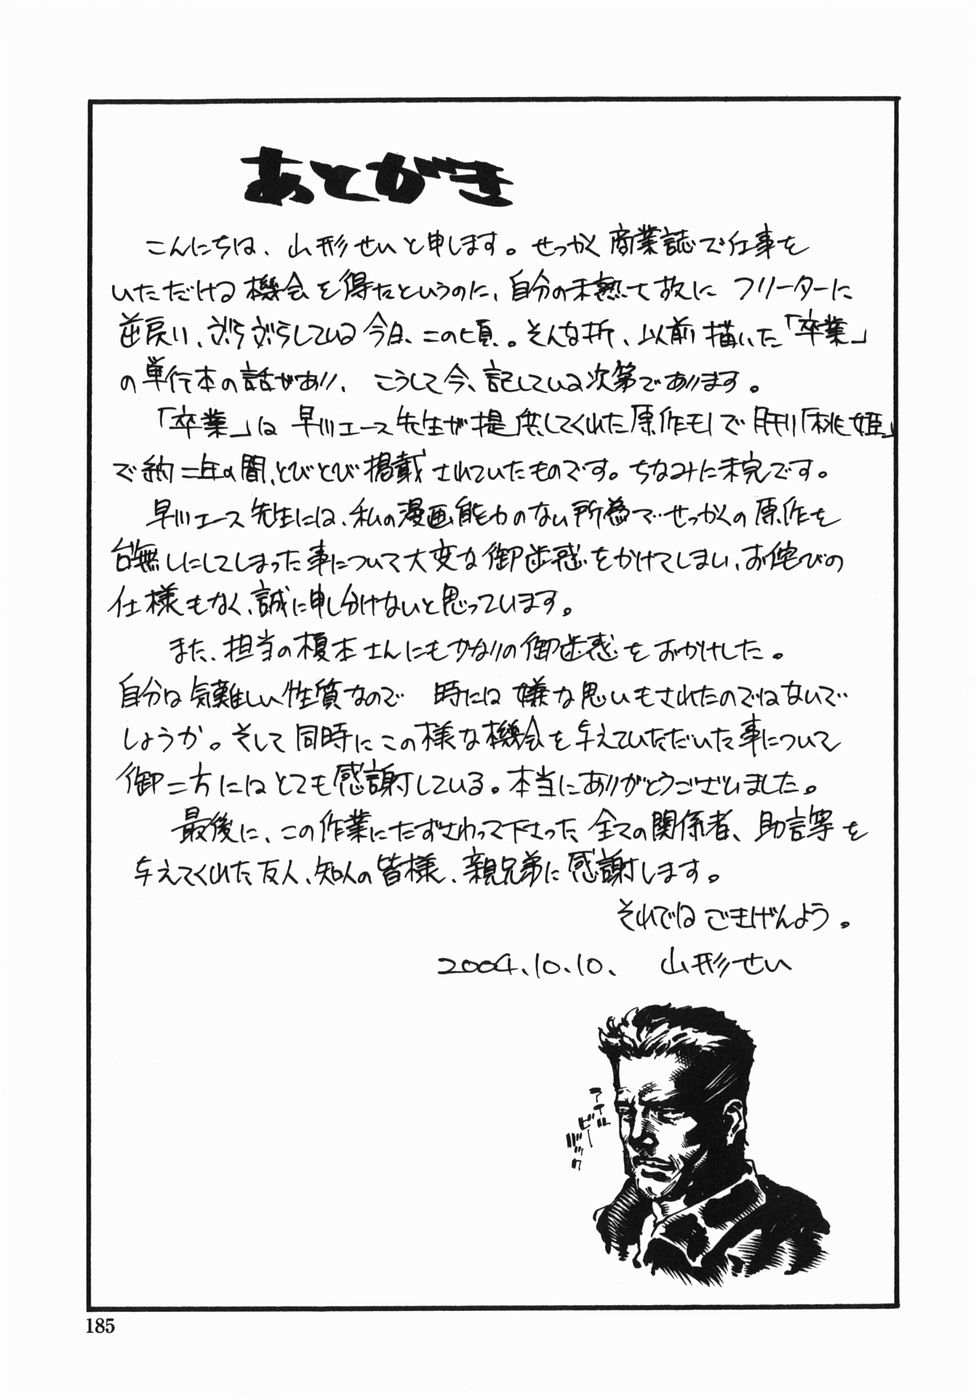 あとがき
こんにちは、山形せいと申します。せっかく商業誌で仕事を
いただける機会を得たというのに、自分の未熟さ故に フリーターに
逆戻り、ぶらぶらしている今日、この頃。そんな折、以前描いた「卒業」
の単行本の話があり、こうして今、記している次第であります。
「卒業」は 早川エース先生が提供してくれた原作モノで 月刊「桃姫」
で約二年の間、とびとび掲載されていたものです。ちなみに未完です。
早川エース先生には、私の漫画能力のない所為でせっかくの原作を
台無しにしてしまった事について大変な御迷惑をかけてしまい、お侘びの
仕様もなく、誠に申し分けないと思っています。
また、担当の榎本さんにもかなりの御迷惑をおかけした。
自分は気難しい性質なので 時には 嫌な思いもされたのではないで
しょうか。そして同時にこの様な機会を与えていただいた事について
御二方にはとても感謝している。本当にありがとうございました。
最後に、この作業にたずさわって下さった、全ての関係者、助言等を
与えてくれた友人、知人の皆様、親兄弟に感謝します。
それではごきげんよう。
2004.10.10、 山形せい
アイル
ビー
バック
185